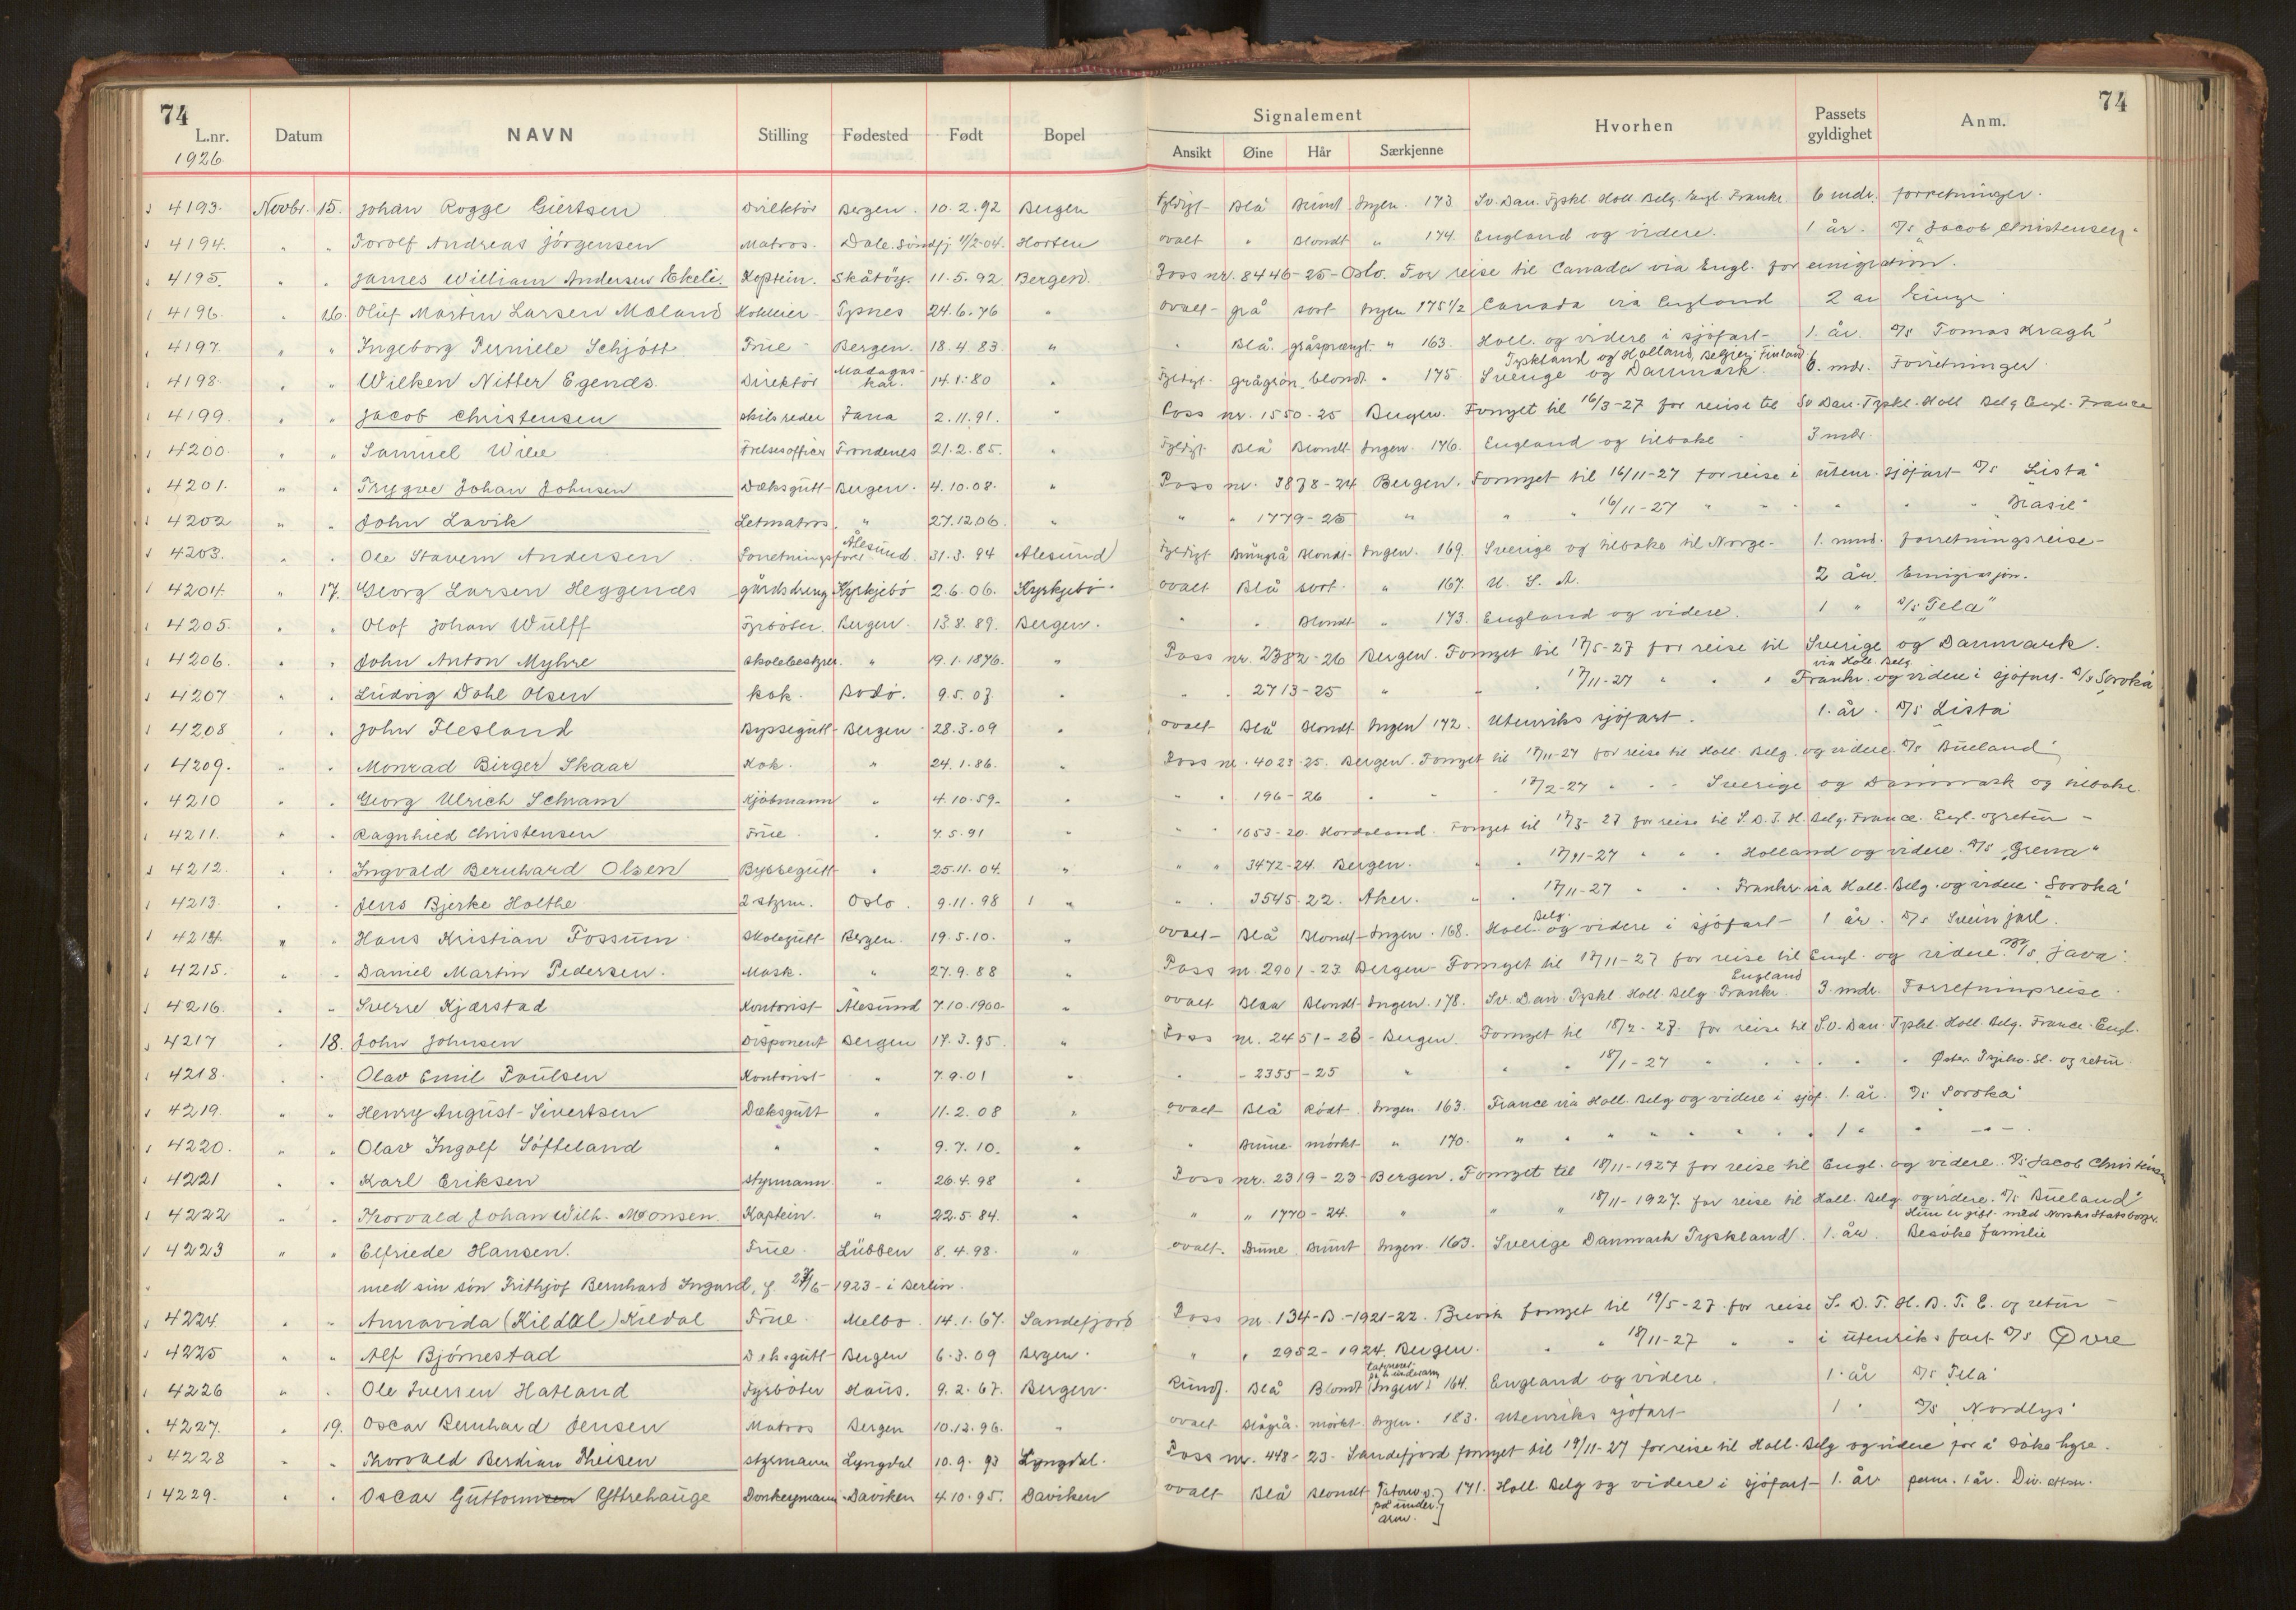 74
74
L.nr. Datum NAVN Stilling Fødested Født Bopel Signalement Hvorhen Passets gyldighet Anm.
Ansikt Øine Hår Særkjenne
1926.
4193. Novbr. 15. Johan Rogge Giertsen Direktör Bergen. 10.2.92 Bergen Fyldigt Blå Brunt Ingen. 173 Sv. Dan. Tyskl. Holl. Belg. Engl. Frankr. 6 mdr. forretninger.
4194. " " Torolf Andreas Jörgensen Matros. Dale. Söndfj. 11/2-04. Horten ovalt " Blondt " 174. England og videre. 1 år. D/s Jacob Christensen"
4195. " " James William Andersen Ekeli. Kaptein. Skåtöy. 11.5.92 Bergen. Pass nr. 8446-25-Oslo. For reise til Canada via Engl. for emigration.
4196. " 16. Oluf Martin Larsen Mæland Hotelleier Tysnes 24.6.76 " ovalt grå sort Ingen 175 1/2 Canada via England 2 år
4197. " " Ingeborg Pernille Schjött Frue Bergen. 18.4.83. " " Blå. gråsprængt " 163. Holl. og videre i sjöfart 1. år. D/s Tomas Kragh"
4198. " " Wilken Nitter Egenæs. Direktör Madagaskar. 14.1.80 " Fyldigt. grågrön. blondt " 175. Sverige og Danmark. Tyskland og Holland, Belgien, Finland 6. mdr. Forretninger
4199. " " Jacob Christensen skibsreder Fana 2.11.91. " Pass nr. 1550-25 Bergen. Fornyet til 16/3-27 for reise til Sv Dan. Tyskl. Holl Belg Engl. France
4200. " " Samuel Wiik Frelsesofficer Trondenes 21.2.85. " Fyldigt Blå Blondt Ingen. 176. England og tilbake 3 mdr.
4201. " " Trygve Johan Johnsen Dæksgutt Bergen. 4.10.08. " Pass nr. 3878-24 Bergen. Fornyet til 16/11-27 for reise i utenr. sjöfart D/s Lista"
4202 " " John Lavik Letmatros. " 27.12.06. " " " 1779-25 " " " 16/11-27 " " " " " Brasil"
4203. " " Ole Stavern Andersen. Forretningsförer Ålesund. 31.3.94 Ålesund Fyldigt Brungrå Blondt Ingen. 169. Sverige og tilbake til Norge. 1. mnd. forretningsreise
4204. " 17. Georg Larsen Heggenæs gårdsdreng Kyrkjebö 2.6.06. Kyrkjebö. ovalt Blå sort. " 167. U. S. A. 2 år. Emigrasjon.
4205. " " Olof Johan Wulff Fyrböter. Bergen. 13.8.89. Bergen. " " Blondt " 173. England og videre. 1 " D/s "Tela"
4206. " " John Anton Myhre skolebestyrer. " 19.1.1876. " Pass nr. 2382-26 Bergen. Fornyet til 17/5-27 for reise til Sverige og Danmark.
4207 " " Ludvig Dahl Olsen kok. Bodö. 9.5.03. " " " 2713-25 " " " 17/11-27 " " " Frankr. via Holl. Belg. og videre i sjöfart. D/s Soroka
4208 " " John Flesland Byssegutt Bergen 28.3.09 " ovalt Blå Blondt Ingen 172. Utenriks sjöfart. 1. år. D/s Lista
4209. " " Monrad Birger Skaar Kok. " 24.1.86. " Pass nr. 4023-25. Bergen. Fornyet til 17/11-27 for reise til Holl. Belg. og videre. D/s Bueland"
4210 " " Georg Ulrich Schram Kjöbmann " 4.10.59. " " " 196-26 " " " 17/2-27 " " " Sverige og Danmark og tilbake.
4211. " " Ragnhild Christensen Frue. " 7.5.91 " " " 1053-20. Hordaland. Fornyet til 17/3-27 for reise til S.D.T.H. Belg. France. Engl. og retur
4212. " " Ingvald Bernhard Olsen Byssegutt " 25.11.04. " " " 3472-24. Bergen. " " 17/11-27 " " " Holland og videre. D/s "Grena"
4213 " " Jens Bjerke Holthe 2 styrm. Oslo. 9.11.98 " " " 3545-22. Aker. " " 17/11-27 " " " Frankr. via Holl. Belg. og videre. Soroka"
4214. " " Hans Kristian Fossum Skolegutt Bergen. 19.5.10. " ovalt Blå Blondt Ingen. 168. Holl. Belg. og videre i sjöfart 1 år. D/s Svein Jarl".
4215. " " Daniel Martin Pedersen. Mask. " 27.9.88 " Pass nr. 2901-23. Bergen Fornyet til 17/11-27 for reise til Engl. og videre. M/s "Java".
4216. " " Sverre Kjærstad Kontorist Ålesund 7.10.1900. " ovalt Blaa Blondt Ingen. 178. Sv. Dan. Tyskl. Holl. Belg. Frankr. England 3 mdr. Forretningsreise.
4217 " 18. John Johnsen Disponent Bergen 17.3.95. " Pass nr. 2451-26 Bergen. Fornyet til 18/2-27. for reise til Sv. Dan. Tyskl. Holl. Belg. France. Engl.
4218. " " Olav Emil Paulsen Kontorist " 7.9.01 " " " 2355-25 " " " 18/1-27 " " " " " Öster. Tsjeko-Sl. og retur.
4219. " " Henry August Sivertsen Dæksgutt " 11.2.08 " ovalt Blå Rödt. Ingen 163. France via Holl. Belg og videre i sjöf. 1. år. D/s Soroka"
4220. " " Olav Ingolf Söfteland " " 9.7.10. " " Brune mörkt " 170. " " " " " " " " 1 " " "
4221 " " Karl Eriksen styrmann. " 26.4.98 " Pass nr. 2319-23 Bergen. Fornyet til 18/11-1927 for reise til Engl. og videre. D/s Jacob Christensen
4222 " " Thorvald Johan Wilh. Monsen. Kaptein. " 22.5.84. " " " 1770-24. " " " 18/11-1927. for reise til Holl. Belg og videre. D/s Bueland"
4223 " " Elfriede Hansen. Frue. Lübben 8.4.98. " ovalt. Brune Brunt Ingen. 163. Sverige Danmark Tyskland. 1. år. Hun er gift med Norsk Statsborger. Besöke familie
med sin sön Frithjof Bernhard Ingvard, f. 27/6-1923-i Berlin.
4224. " " Annavida (Kildal) Kildal Frue. Melbo. 14.1.67. Sandefjord Pass nr. 134-B.-1921-22. Brevik fornyet til 19/5-27 for reise S. D. T. H. B. F. E. og retur
4225 " " Alf Bjørnestad Deksgutt Bergen 6.3.09 Bergen. " " 2952-1924. Bergen. " " 18/11-27 " " i utenriks fart D/s Øvre
4226 " " Ole Iversen Hatland Fyrböter Haus. 9.2.67. Bergen. Rund. Blå Blondt (Ingen) Tatoveret på h. underarm 164. England og videre. 1. år D/s Tela"
4227. " 19. Oscar Bernhard Jensen Matros Bergen 10.12.96. " ovalt Blågrå. mörkt. Ingen. 183. Utenriks sjöfart 1 " D/s Nordlys"
4228 " " Thorvald Berdian Theisen styrmann Lyngdal 10.9.93 Lyngdal. Pass nr. 448-23. Sandefjord fornyet til 19/11-27 for reise til Holl. Belg og videre for å söke hyre.
4229. " " Oscar Guttormsen Yttrehauge Donkeymann Daviken 4.10.95. Daviken ovalt Blå Blondt Tatow. på under. arm. 171. Holl. Belg og videre i sjöfart 1. år perm. 1 år. Div. attester.